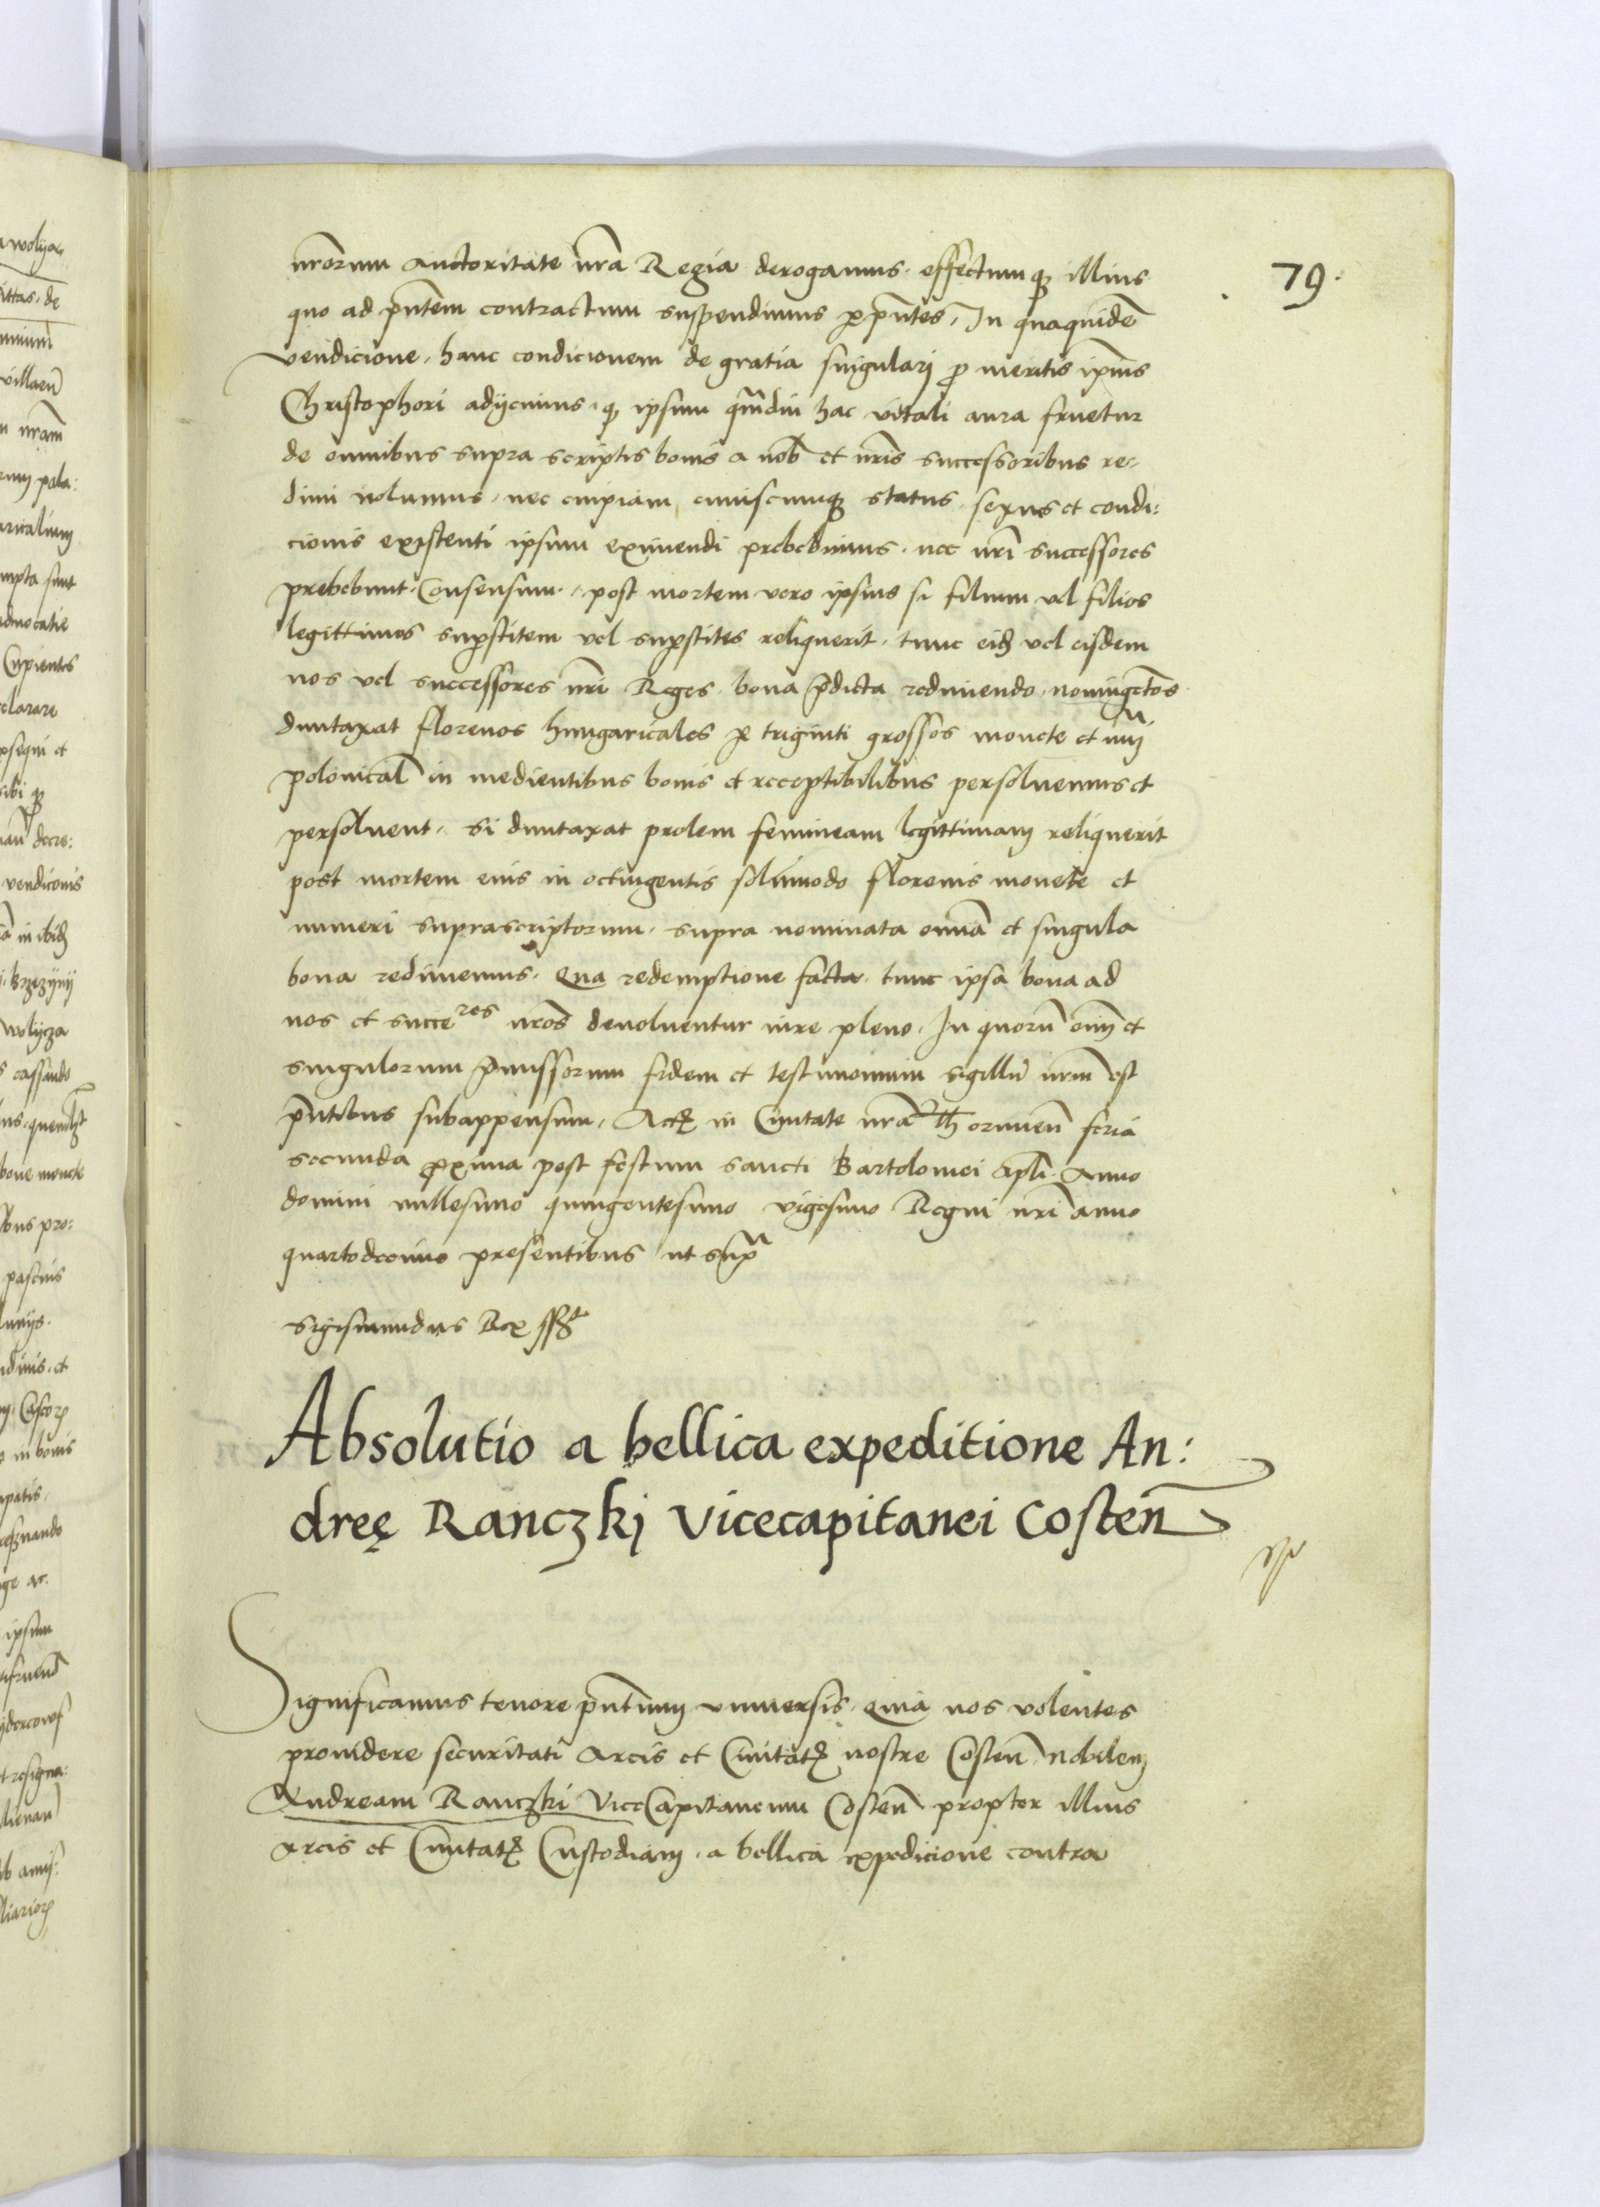 79.
nr̃orum auctoritate nr̃a Regia derogamus. effectumq3 illius
quo ad pñtem contractum suspendimus p pñtes, In quaquidẽ
vendicione, hanc condicionem de gratia singulari p meritis ip̃ius
Christophori adijcimus, q3 ipsum q̃mdiu hac vitali aura fruetur
de omnibus supra scriptis bonis a nob̃ et nr̃is successoribus re-
dimi nolumus, nec cuipiam, cuiuscumq3 status, sexus et condi:
cionis existenti ipsum eximendi prebebimus, nec nr̃i successores
prebebunt, Consensum, post mortem vero ipsius si filium vel filios
legittimos supstitem vel supstites reliquerit, tunc eid3 vel eisdem
nos vel successores nr̃i Reges, bona p̃dicta redimendo, noningẽtos
duntaxat florenos hungaricales p triginti grossos monete et nũi
polonical̃ in medientibus bonis et receptibilibus persoluemus et
persoluent, si duntaxat prolem femineam legittimam reliquerit
post mortem eius in octingentis solũmodo florenis monete et
numeri suprascriptorum, supra nominata om̃ia et singula
bona redimemus. Qua redemptione facta, tunc ipsa bona ad
nos et succeres nr̃os deuoluentur iure pleno. In quorũ oĩm et
singulorum p̃missorum fidem et testimonium sigillũ nr̃m est
pñtibus subappensum, Act3 in Ciuitate nr̃a Thorunieñ feria
secunda proxima post festum sancti Bartolomei ap̃li. Anno
domini millesimo quingentesimo vigesimo Regni nr̃i anno
quartodecimo presentibus ut supra
Sigismundus Rex sst
Absolutio a bellica expeditione An:
dreę Ranczkj Vicecapitanei Costeñ
Significamus tenore pñtium vniuersis. Quia nos volentes
prouidere securitati Arcis et Ciuitat3 nostre Costeñ Nobilem
Andream Ranczki ViceCapitaneum Costeñ propter illius
Arcis et Ciuitat3 Custodiam, a bellica expedicione contra